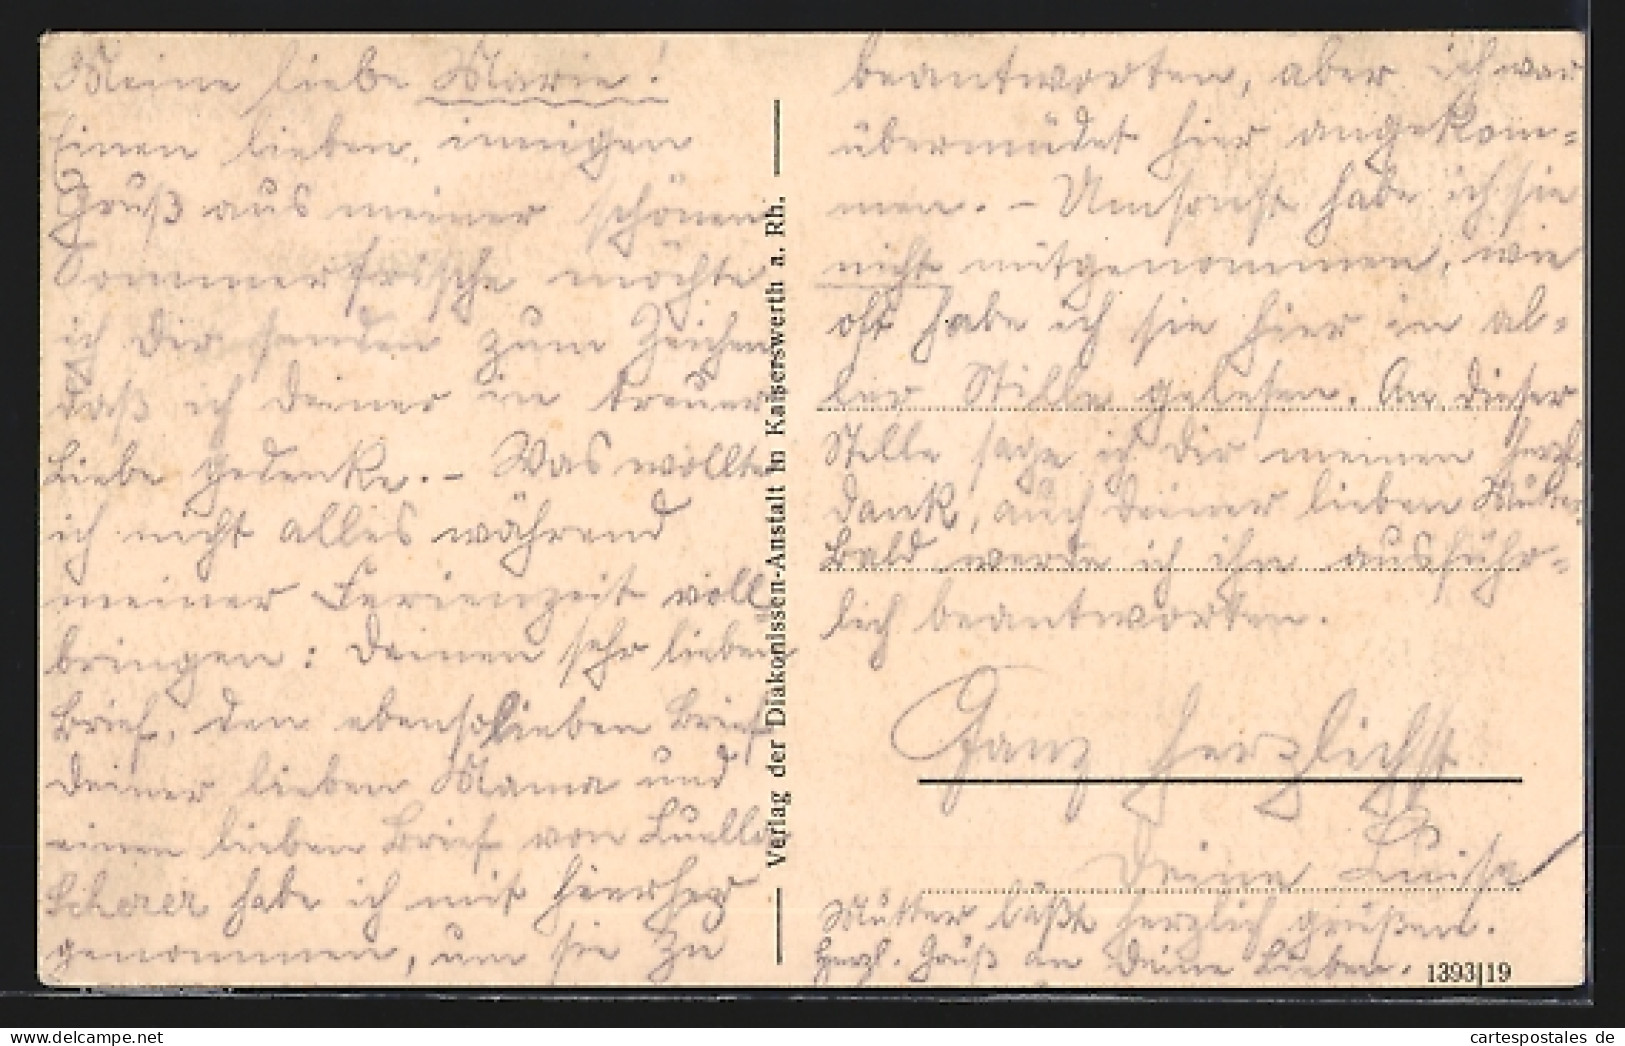 Meine liebe Marie!
Einen lieben, innigen
Gruß aus meiner schönen
Sommerfrische möchte
ich Dir senden zum Zeichen
daß ich Deiner in treuer
Liebe gedenke. – Was wollte
ich nicht alles während
meiner Ferienzeit voll
bringen: Deinen sehr lieben
Brief, den ebenso lieben Brief
Deiner lieben Mama und
einen lieben Brief von Luella
Scherer habe ich mit hierher
genommen, um sie zu
Verlag der Diakonissen-Anstalt in Kaiserswerth a. Rh.
beantworten, aber ich war
übermüdet hier angekom=
men. – Umsonst habe ich sie
nicht mitgenommen, wie
oft habe ich sie hier in al=
ler Stille gelesen. In dieser
Stille sage ich Dir meinen herzl.
Dank, auch Deiner lieben Mutter.
Bald werde ich ihn ausführ=
lich beantworten.
Ganz herzlichst
Deine Luise
Mutter läßt herzlich grüßen.
Herzl. Gruß an Deine Lieben.
1393|19
cartespostales de